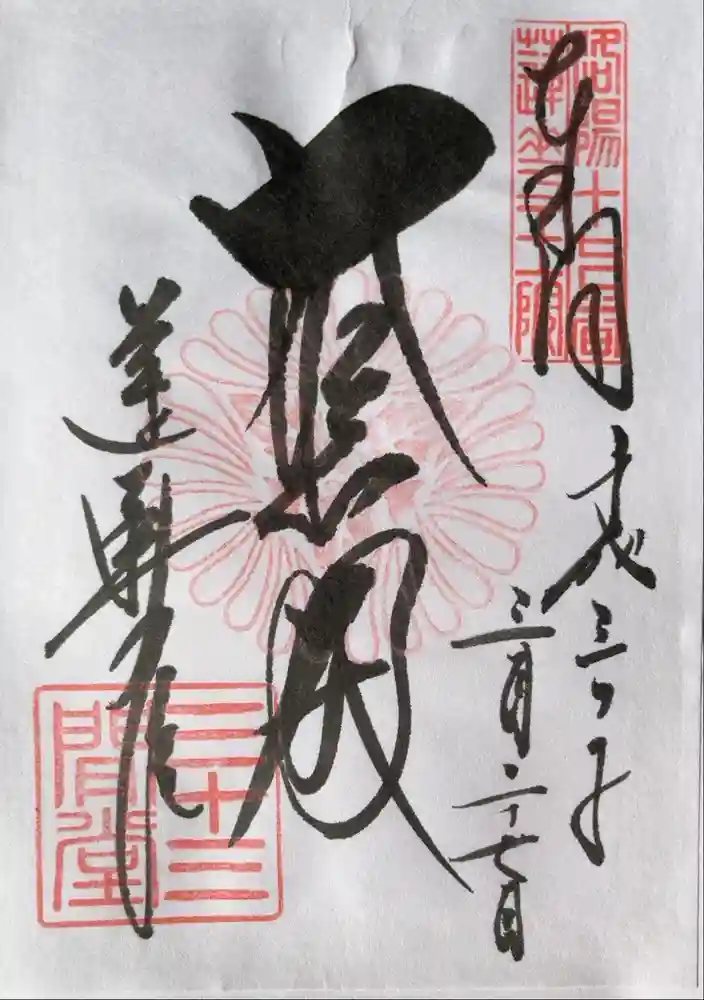 奉拝
洛陽十七番
蓮華王院
平成三十年
三月二十七日
大悲閣
蓮華王院
三十三
間堂